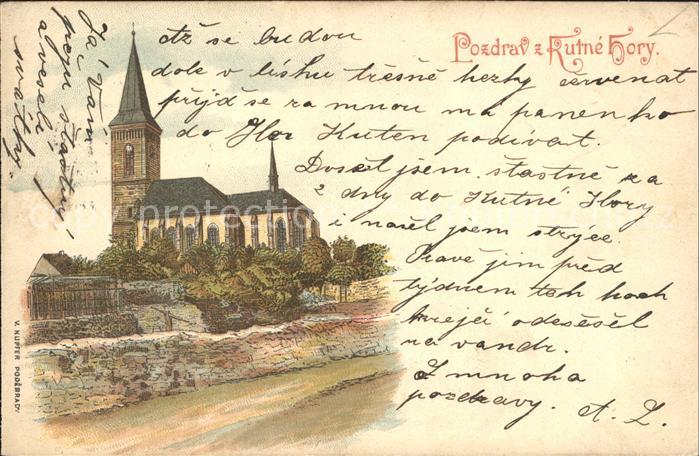 Pozdrav z Kutné Hory.
Až se budou
dole v lísku třešně hezky červenat
přijď se za mnou má panenko
do Hor Kuten podívat.
Došel jsem šťastně za
2 dny do Kutné Hory
i našel jsem strýce.
Právě jim před
týdnem ten hoch
krejčí odešel
na vandr.
Z mnoha
pozdravy. A. L.
Já Vám
přeju šťastny
a veselé
svátky!
V. KUFFER PODĚBRADY